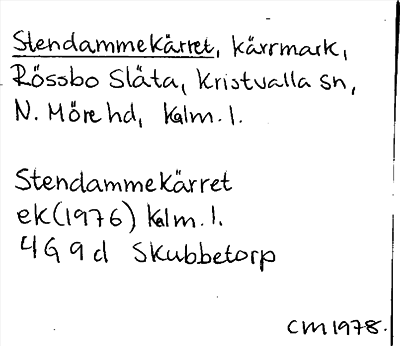 Stendammekärret, kärrmark,
Rössbo Slåta, Kristvalla sn,
N. Möre hd, Kalm. l.
Stendammekärret
ek (1976) Kalm. l.
4G 9d Skubbetorp
CM 1978.